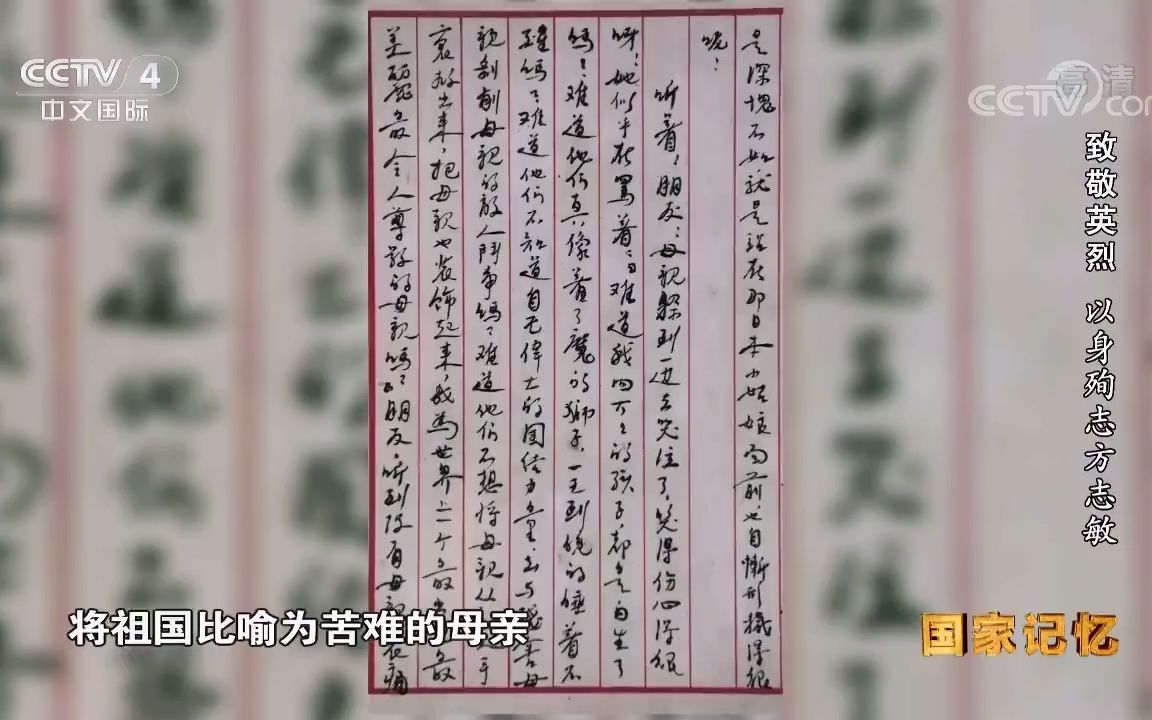 CCTV 4
中文国际
高清
CCTV.com
是深愧不如就是站在那日本小姑娘面前,也自慚形穢得很
呢!
听着,朋友!母親躲到一边去哭泣了,哭得伤心得很
呀!她似乎在罵着:“难道我四万万的孩子,都是白生了
嗎?难道他们真像着了魔的獅子,一天到晚的睡着不
醒嗎?难道他们不知道自己偉大的团结力量,去与残害母
親剥削母親的敌人鬥争嗎?难道他们不想将母親从手
裏救出来,把母親也装飾起来,成为世界上一个最出最
美丽最令人尊敬的母親嗎?”朋友,听到没有母親哀痛
将祖国比喻为苦难的母亲
致敬英烈 以身殉志方志敏
国家记忆